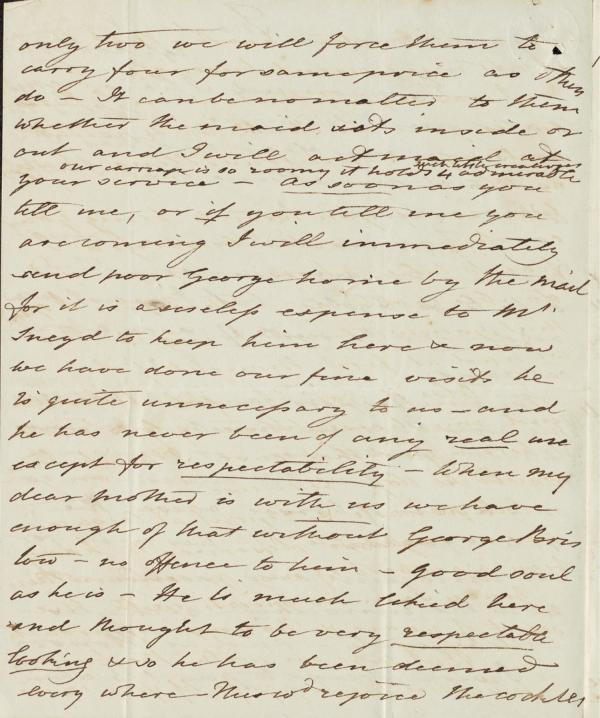 only two we will force them to
carry four for same price as they
do – It can be no matter to them
whether the maid sits inside or
out and I will act maid at
our carriage is so roomy it holds 4 admirable
with little creatures
your service – as soon as you
tell me, or if you tell me you
are coming I will immediately
send poor George home by the mail
for it is a useless expense to Mr.
Sneyd to keep him here & now
we have done our fine visits he
is quite unnecessary to us – and
he has never been of any real use
except for respectability – When my
dear mother is with us we have
enough of that without George Bris
tow – no offence to him – good soul
as he is – He is much liked here
and thought to be very respectable
looking & so he has been deemed
every where – This wd rejoice the cockles